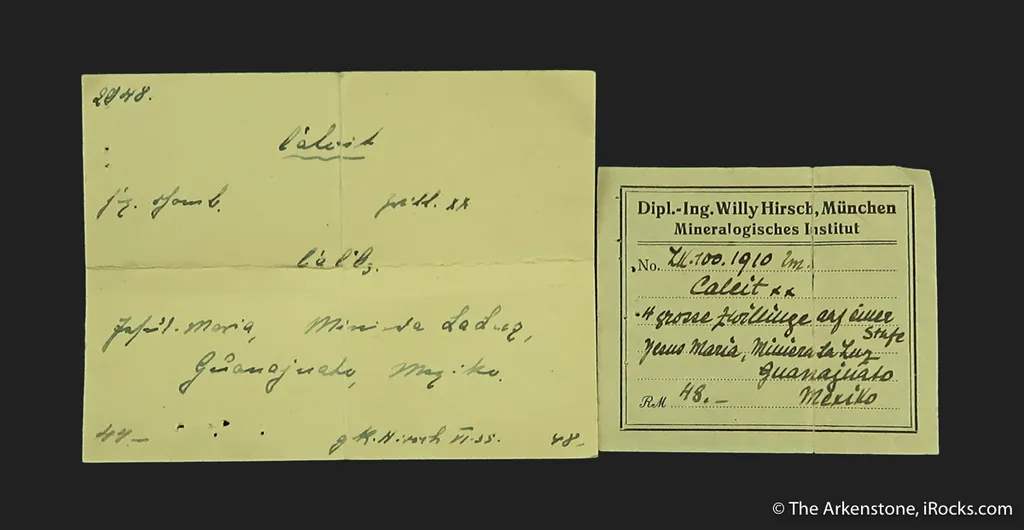 2048.
Calcit
hex. rhomb. xx
CaCO3.
Jesús-Maria, Miniera La Luz,
Guanajuato, Mexiko.
44.— 48.-
Dipl.-Ing. Willy Hirsch, München
Mineralogisches Institut
No. 100.1910
Calcit xx
4 grosse Zwillinge auf einer
Stufe
Jesus Maria, Miniera La Luz
Guanajuato
Mexiko
RM 48.-
© The Arkenstone, iRocks.com